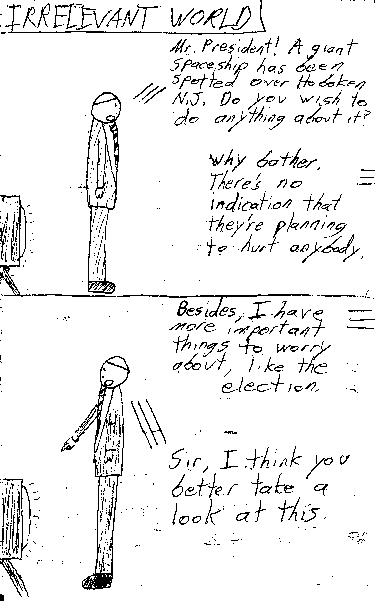 IRRELEVANT WORLD
Mr. President! A giant
spaceship has been
spotted over Hoboken
N.J. Do you wish to
do anything about it?
Why bother.
There's no
indication that
they're planning
to hurt anybody.
Besides, I have
more important
things to worry
about, like the
election.
Sir, I think you
better take a
look at this.